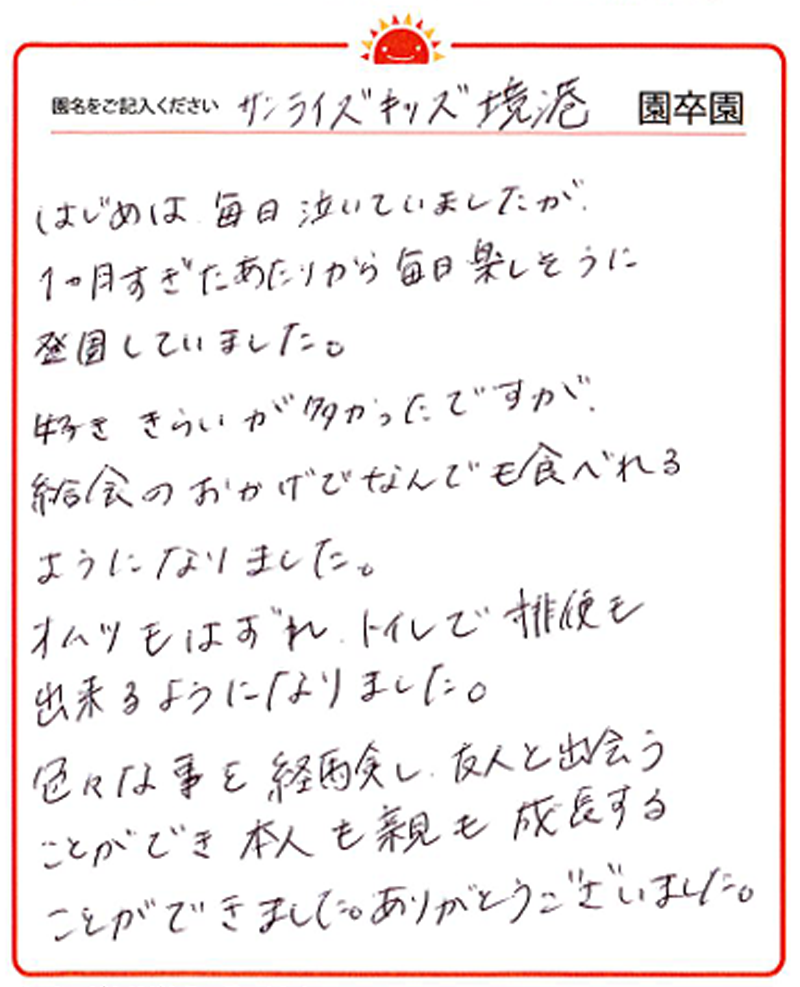 園名をご記入ください サンライズキッズ境港 園卒園
はじめは、毎日泣いていましたが、
1ヶ月すぎたあたりから毎日楽しそうに
登園していました。
好ききらいが多かったですが、
給食のおかげでなんでも食べれる
ようになりました。
オムツもはずれ、トイレで排便も
出来るようになりました。
色々な事を経験し、友人と出会う
ことができ本人も親も成長する
ことができました。ありがとうございました。